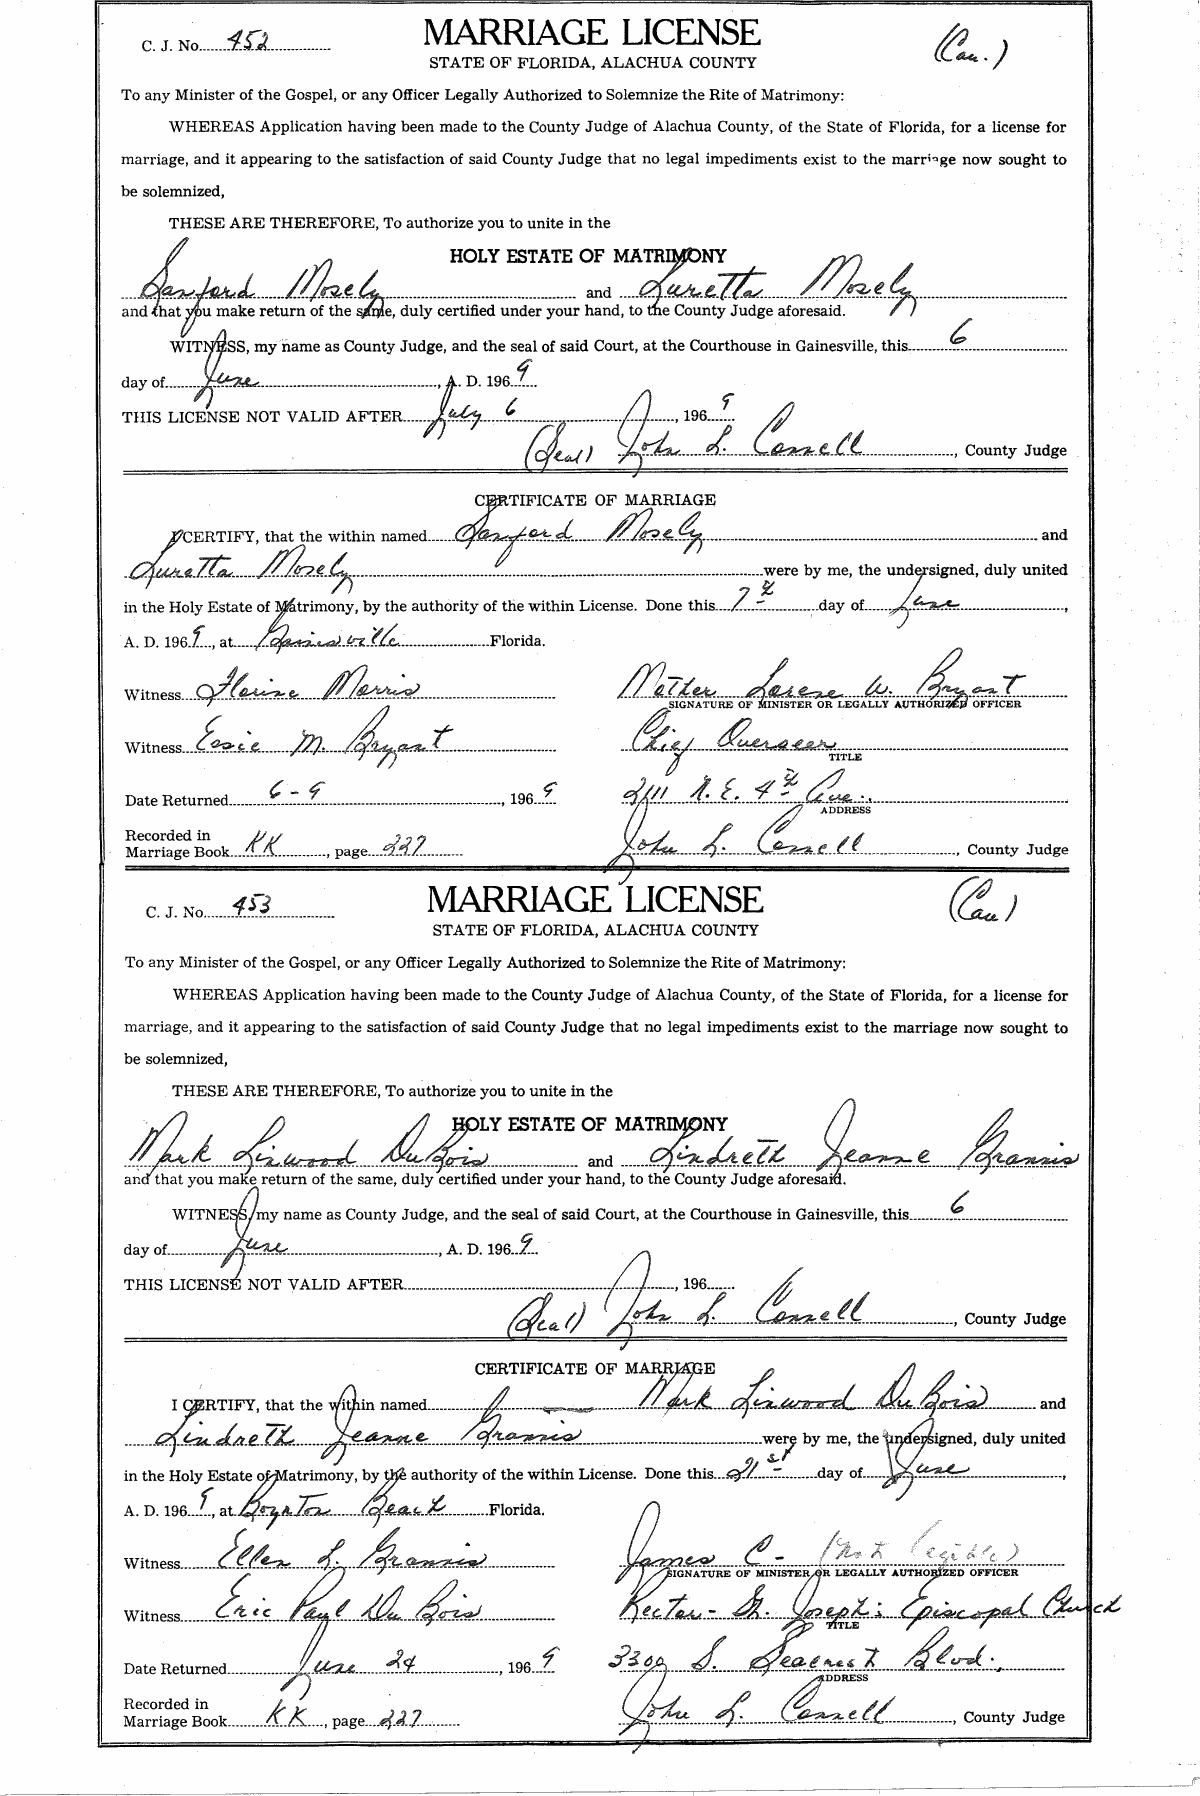 C. J. No. 452
MARRIAGE LICENSE
(Cau.)
STATE OF FLORIDA, ALACHUA COUNTY
To any Minister of the Gospel, or any Officer Legally Authorized to Solemnize the Rite of Matrimony:
WHEREAS Application having been made to the County Judge of Alachua County, of the State of Florida, for a license for
marriage, and it appearing to the satisfaction of said County Judge that no legal impediments exist to the marriage now sought to
be solemnized,
THESE ARE THEREFORE, To authorize you to unite in the
HOLY ESTATE OF MATRIMONY
Sanford Mosely and Luretta Mosely
and that you make return of the same, duly certified under your hand, to the County Judge aforesaid.
WITNESS, my name as County Judge, and the seal of said Court, at the Courthouse in Gainesville, this 6
day of June, A. D. 1969
THIS LICENSE NOT VALID AFTER July 6, 1969
(Seal) John L. Connell, County Judge
CERTIFICATE OF MARRIAGE
I CERTIFY, that the within named Sanford Mosely and
Luretta Mosely were by me, the undersigned, duly united
in the Holy Estate of Matrimony, by the authority of the within License. Done this 7th day of June,
A. D. 1969, at Gainesville Florida.
Witness Florine Morris Mother Lorene W. Bryant
SIGNATURE OF MINISTER OR LEGALLY AUTHORIZED OFFICER
Witness Essie M. Bryant Chief Overseer
TITLE
Date Returned 6-9, 1969 2111 N. E. 4th Ave.
ADDRESS
Recorded in
Marriage Book KK, page 227 John L. Connell, County Judge
C. J. No. 453
MARRIAGE LICENSE
(Cau)
STATE OF FLORIDA, ALACHUA COUNTY
To any Minister of the Gospel, or any Officer Legally Authorized to Solemnize the Rite of Matrimony:
WHEREAS Application having been made to the County Judge of Alachua County, of the State of Florida, for a license for
marriage, and it appearing to the satisfaction of said County Judge that no legal impediments exist to the marriage now sought to
be solemnized,
THESE ARE THEREFORE, To authorize you to unite in the
HOLY ESTATE OF MATRIMONY
Mark Linwood DuBois and Lindreth Jeanne Grannis
and that you make return of the same, duly certified under your hand, to the County Judge aforesaid.
WITNESS, my name as County Judge, and the seal of said Court, at the Courthouse in Gainesville, this 6
day of June, A. D. 1969
THIS LICENSE NOT VALID AFTER , 196
(Seal) John L. Connell, County Judge
CERTIFICATE OF MARRIAGE
I CERTIFY, that the within named Mark Linwood DuBois and
Lindreth Jeanne Grannis were by me, the undersigned, duly united
in the Holy Estate of Matrimony, by the authority of the within License. Done this 21st day of June,
A. D. 1969, at Boynton Beach Florida.
Witness Ellen L. Grannis James C- (Not Legible)
SIGNATURE OF MINISTER OR LEGALLY AUTHORIZED OFFICER
Witness Eric Paul DuBois Rector- St. Joseph's Episcopal Church
TITLE
Date Returned June 24, 1969 3300 S. Seacrest Blvd.
ADDRESS
Recorded in
Marriage Book KK, page 227 John L. Connell, County Judge